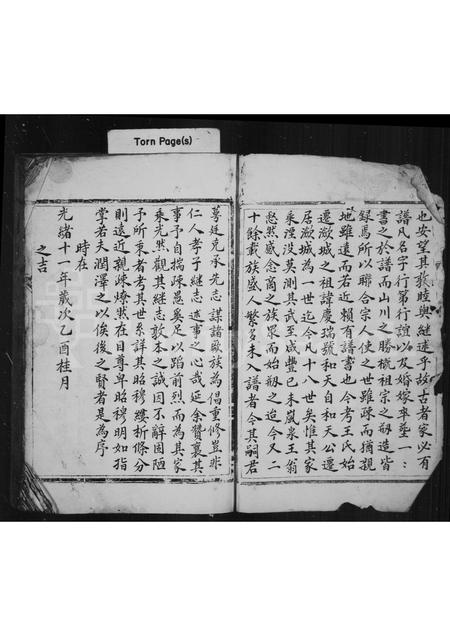 Torn Page(s)
也安望其敦睦與継述乎故古者家必有
譜凡名字行第行誼以及婚嫁卒塟一一
書之於譜而山川之勝槪祖宗之刱造皆
録焉所以聯合宗人使之世雖疎而猶親
地雖遠而若近賴有譜書也今考王氏始
遷潡城之祖諱慶瑞號和天自和天公遷
居潡城為一世迄今凡十八世矣惟其家
乗湮没莫測其武至咸豐已未嵐泉王翁
愁然感念喬之族眾而始刱之迨今又二
十餘載族盛人繁多未入譜者今其嗣君
萼廷克承先志謀諸啟族為倡重修豈非
仁人孝子継志述事之心哉延余贊襄其
事予自揣疎愚奚足以蹈前烈而為其家
乗光然觀其継志敦本之誠因不辭固陋
予所秉者考其世系詳其昭穆縷析條分
則遠近親疎燎然在目尊卑昭穆明如指
掌若夫潤澤之以俟後之賢者是為序
時在
光緒十一年歲次乙酉桂月
之吉